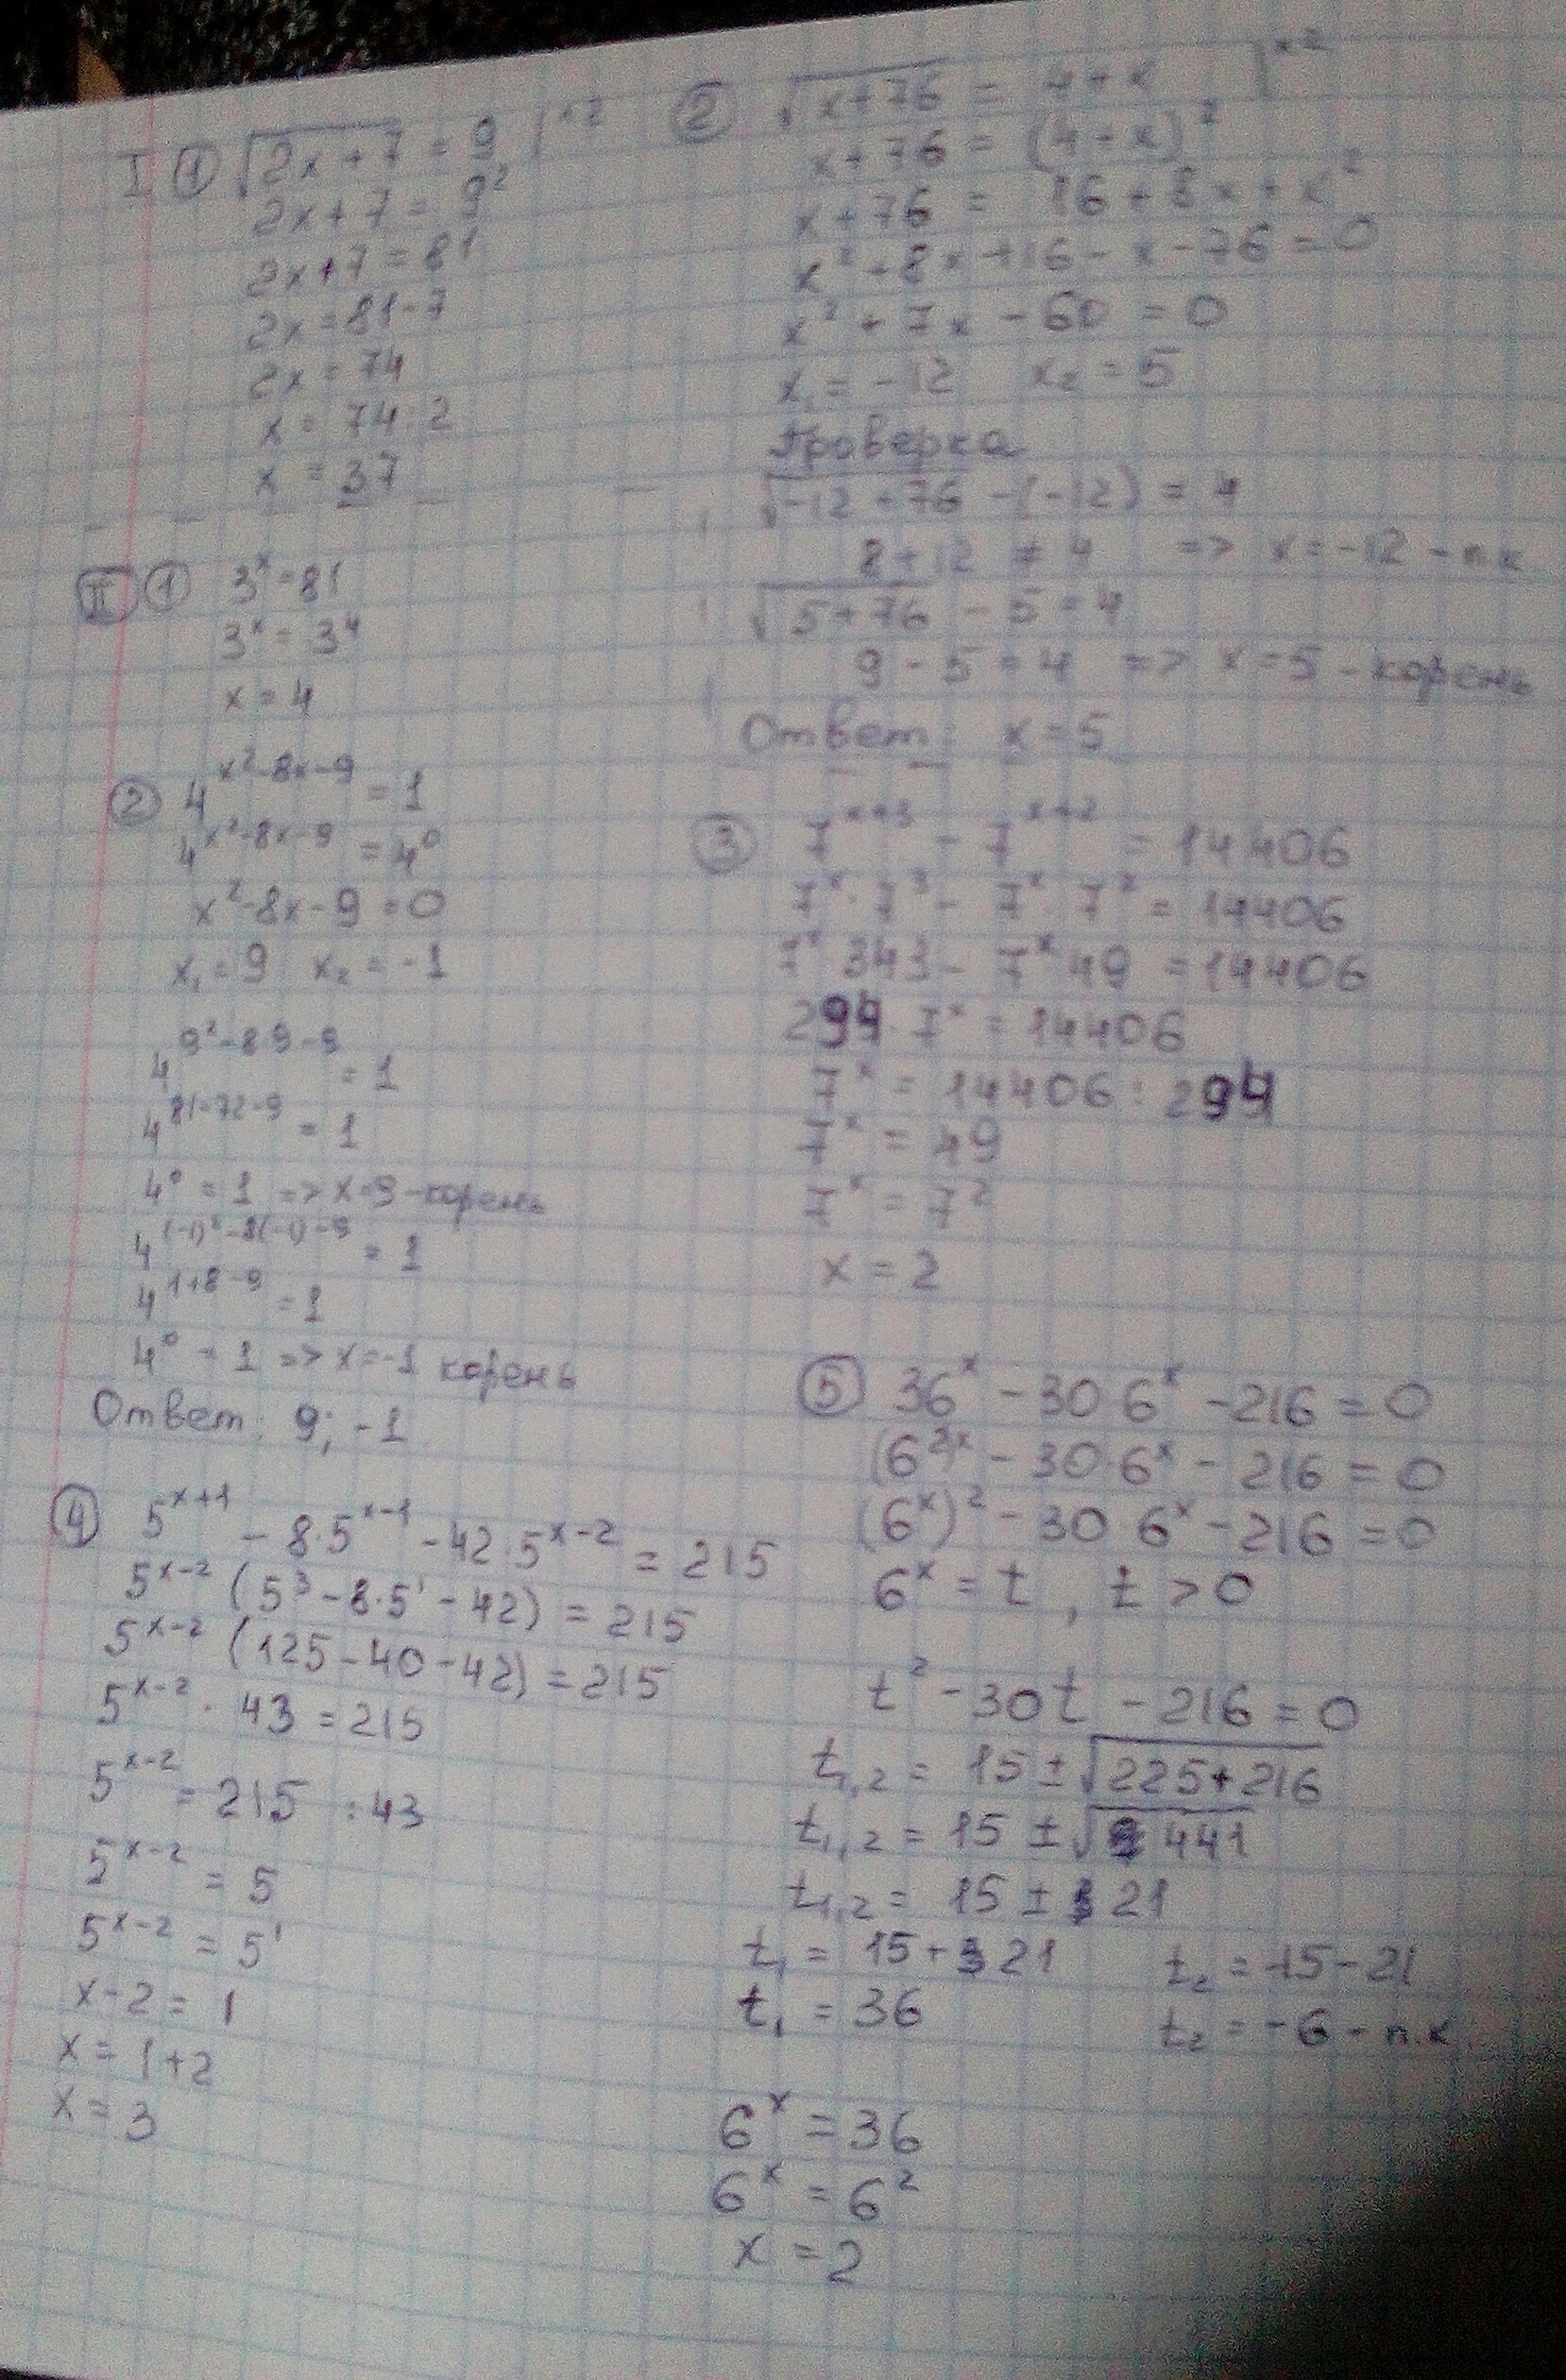 I ① √2x+7 = 9 |^x2
2x+7 = 9²
2x+7 = 81
2x = 81-7
2x = 74
x = 74:2
x = 37
② √x+76 = 4+x |^x2
x+76 = (4+x)²
x+76 = 16+8x+x²
x²+8x+16-x-76 = 0
x²+7x-60 = 0
x₁ = -12 x₂ = 5
Проверка
√-12+76 -(-12) = 4
8+12 ≠ 4 => x=-12 - п.к
√5+76 - 5 = 4
9-5 = 4 => x=5 - корень
Ответ: x=5
II ① 3^x = 81
3^x = 3⁴
x = 4
② 4^(x²-8x-9) = 1
4^(x²-8x-9) = 4⁰
x²-8x-9 = 0
x₁ = 9 x₂ = -1
4^(9²-8·9-9) = 1
4^(81-72-9) = 1
4⁰ = 1 => x=9 - корень
4^((-1)²-8(-1)-9) = 1
4^(1+8-9) = 1
4⁰ = 1 => x=-1 корень
Ответ: 9; -1
③ 7^(x+3) - 7^(x+2) = 14406
7^x · 7³ - 7^x · 7² = 14406
7^x 343 - 7^x 49 = 14406
294 · 7^x = 14406
7^x = 14406 : 294
7^x = 49
7^x = 7²
x = 2
④ 5^(x+1) - 8·5^(x-1) - 42·5^(x-2) = 215
5^(x-2) (5³ - 8·5¹ - 42) = 215
5^(x-2) (125-40-42) = 215
5^(x-2) · 43 = 215
5^(x-2) = 215 : 43
5^(x-2) = 5
5^(x-2) = 5¹
x-2 = 1
x = 1+2
x = 3
⑤ 36^x - 30·6^x - 216 = 0
(6^2)^x - 30·6^x - 216 = 0
(6^x)² - 30·6^x - 216 = 0
6^x = t, t > 0
t² - 30t - 216 = 0
t₁,₂ = 15 ± √225+216
t₁,₂ = 15 ± √441
t₁,₂ = 15 ± 21
t₁ = 15+21 t₂ = 15-21
t₁ = 36 t₂ = -6 - п.к.
6^x = 36
6^x = 6²
x = 2